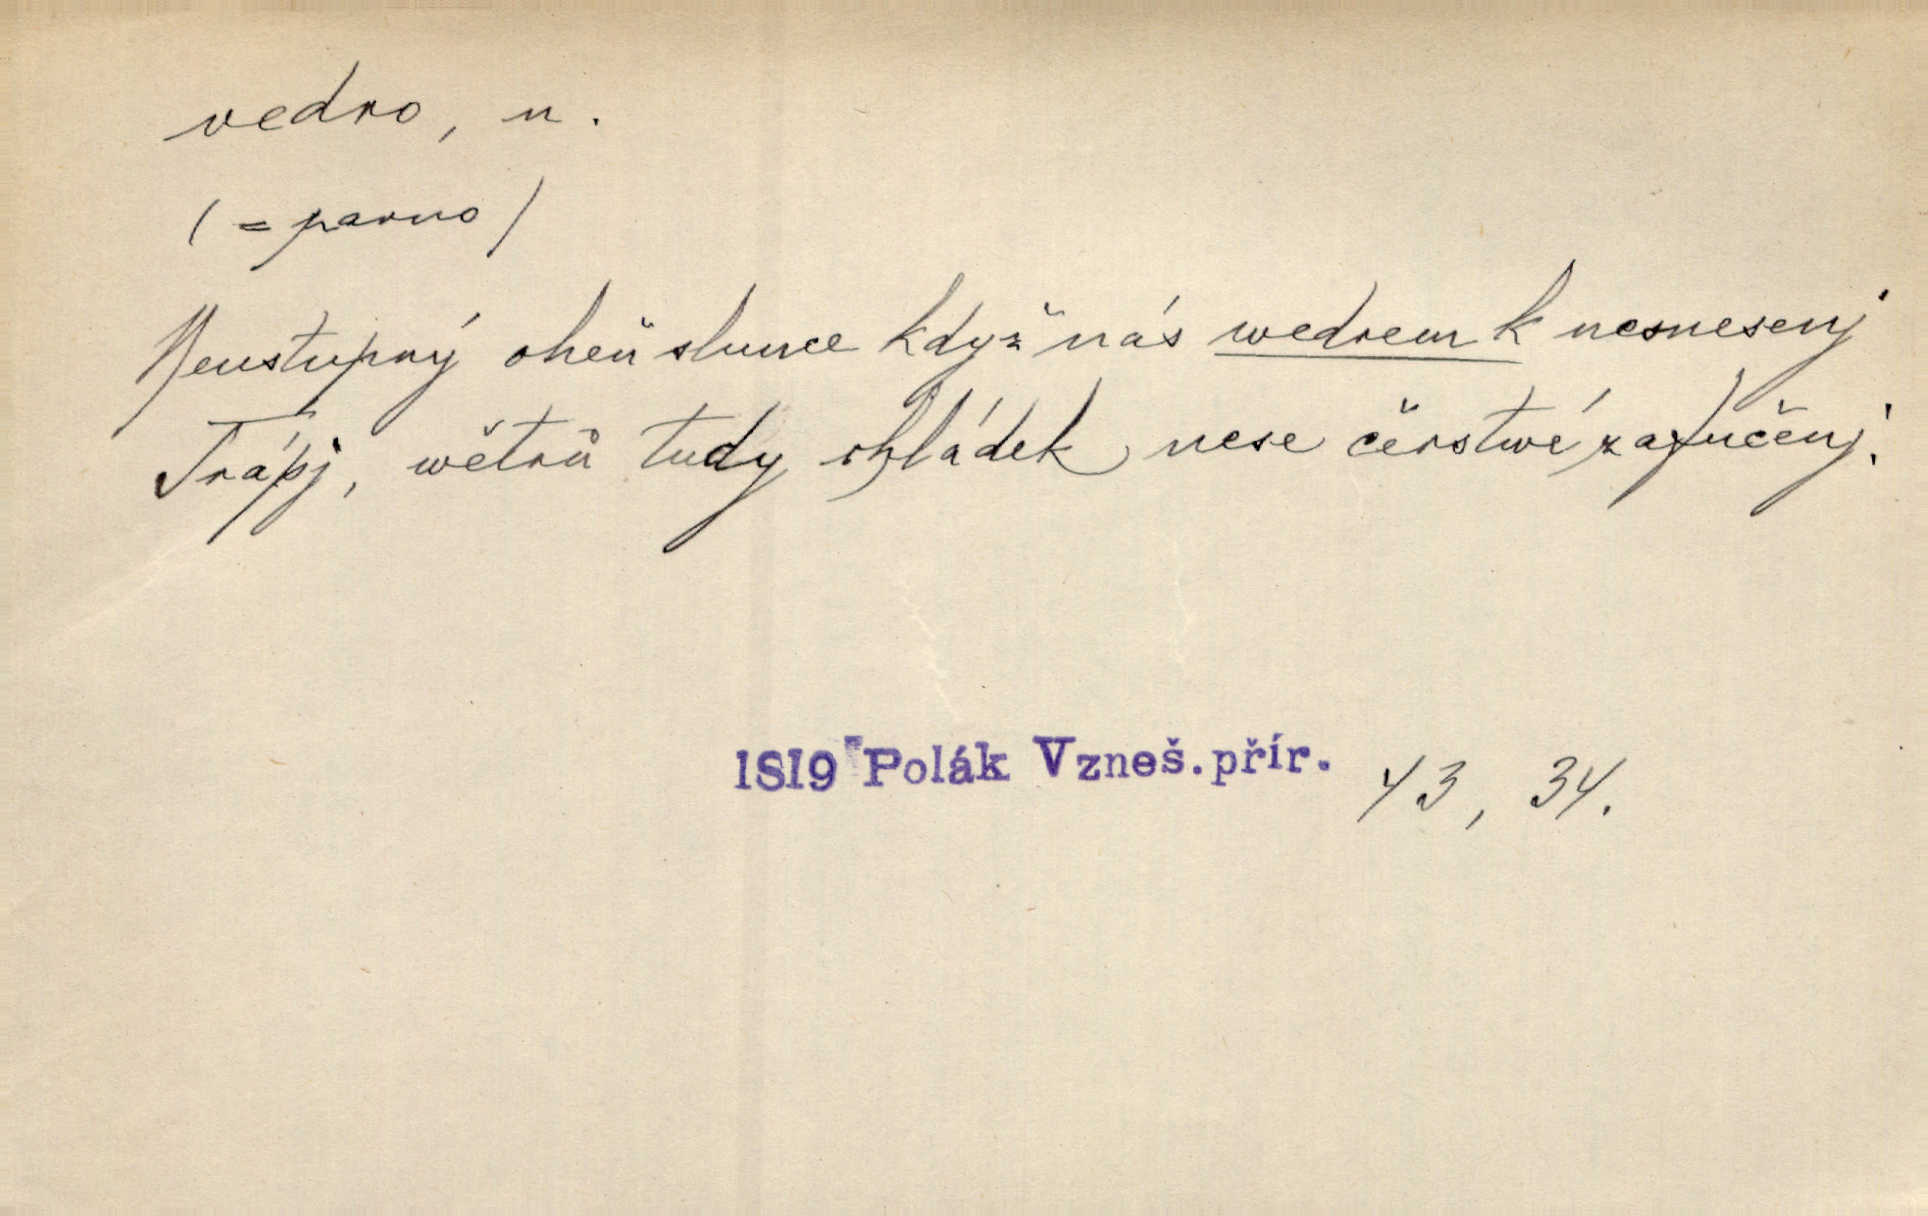 vedro, n.
(= parno)
Neustupný oheň slunce když nás wedrem k nesnesenj
Trápj, wětrů tudy chládek nese čerstwé zafučenj.
1819 Polák Vzneš.přír. 43, 34.